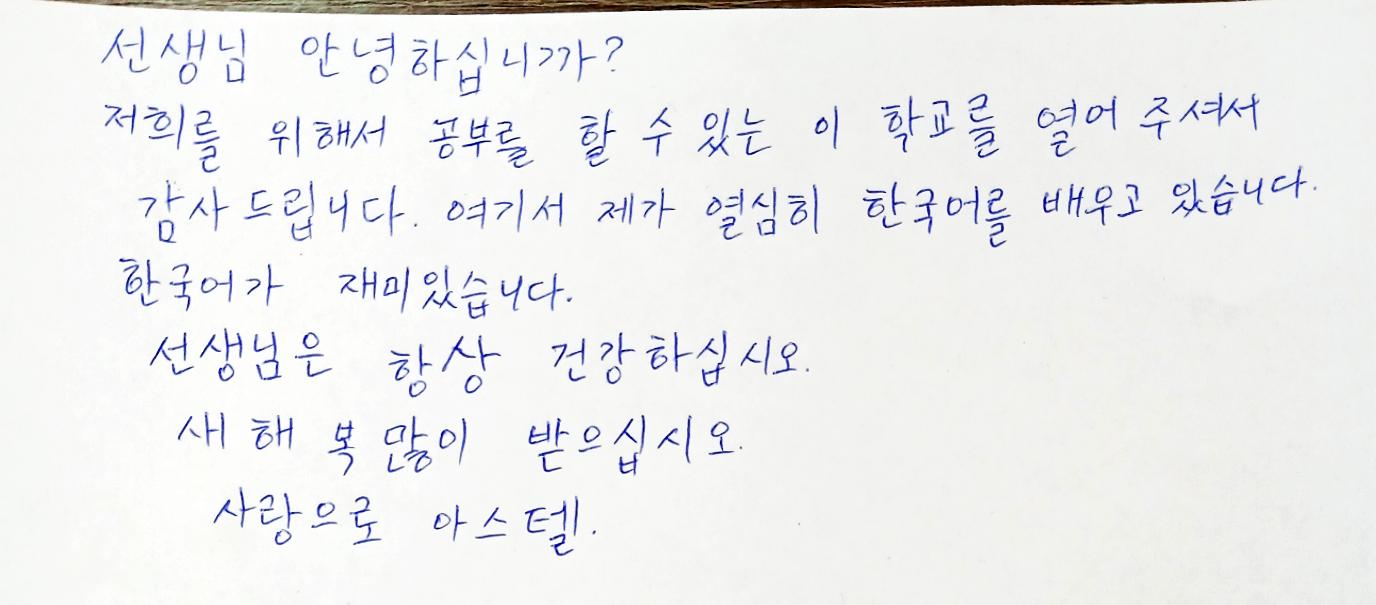 선생님 안녕하십니까?
저희를 위해서 공부를 할 수 있는 이 학교를 열어 주셔서
감사드립니다. 여기서 제가 열심히 한국어를 배우고 있습니다.
한국어가 재미있습니다.
선생님은 항상 건강하십시오.
새해 복 많이 받으십시오.
사랑으로 아스텔.